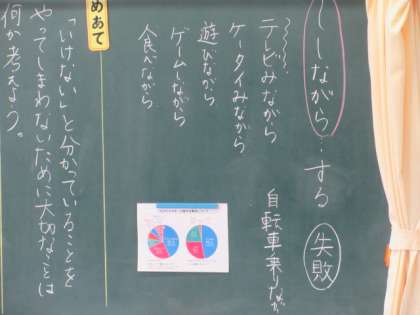 〜しながら…する
失敗
テレビみながら
自転車乗りなが
ケータイみながら
遊びながら
ゲームしながら
食べながら
めあて
「いけない」と分かっていることを
やってしまわないために大切なことは
何か考えよう。